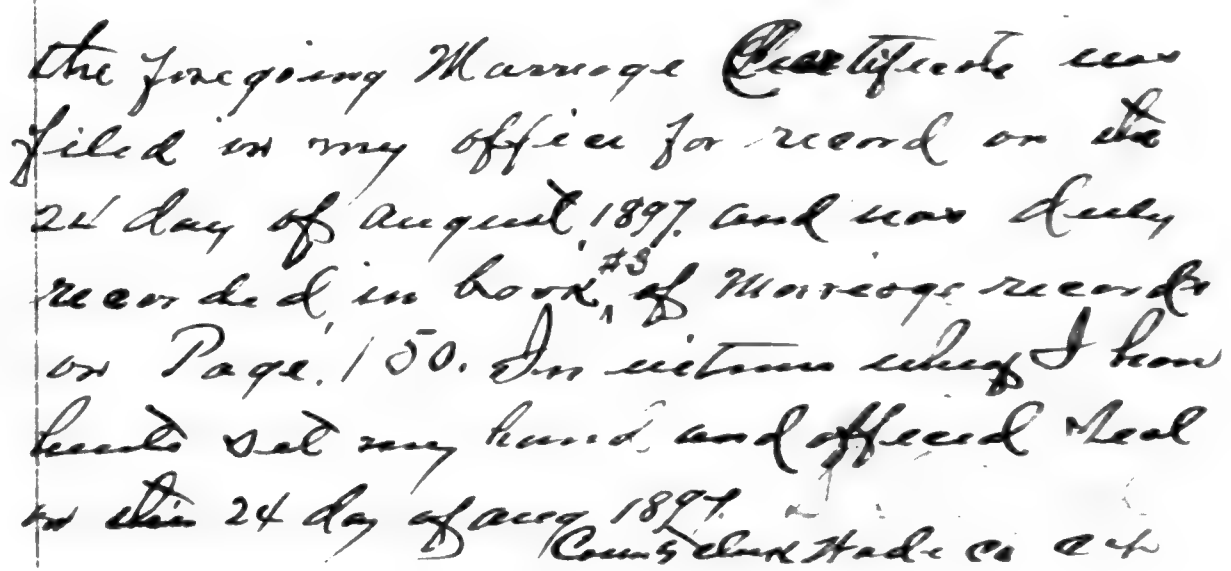 the foregoing Marriage Certificate was
filed in my office for record on the
24 day of august, 1897. and was duly
recorded, in book, #3 of Marriage records
on Page, 150. In witness whereof I have
hereunto set my hand and official seal
on this 24 day of aug 1897.
County Clerk Wade co